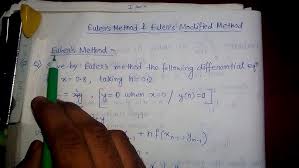 Euler's Method & Euler's Modified Method
Euler's Method:-
by Euler's method the following differential eqn
x = 0.8, taking h = 0.2
[y = 0 when x = 0 / y(0) = 0]
+ h f(xn-1, yn-1)